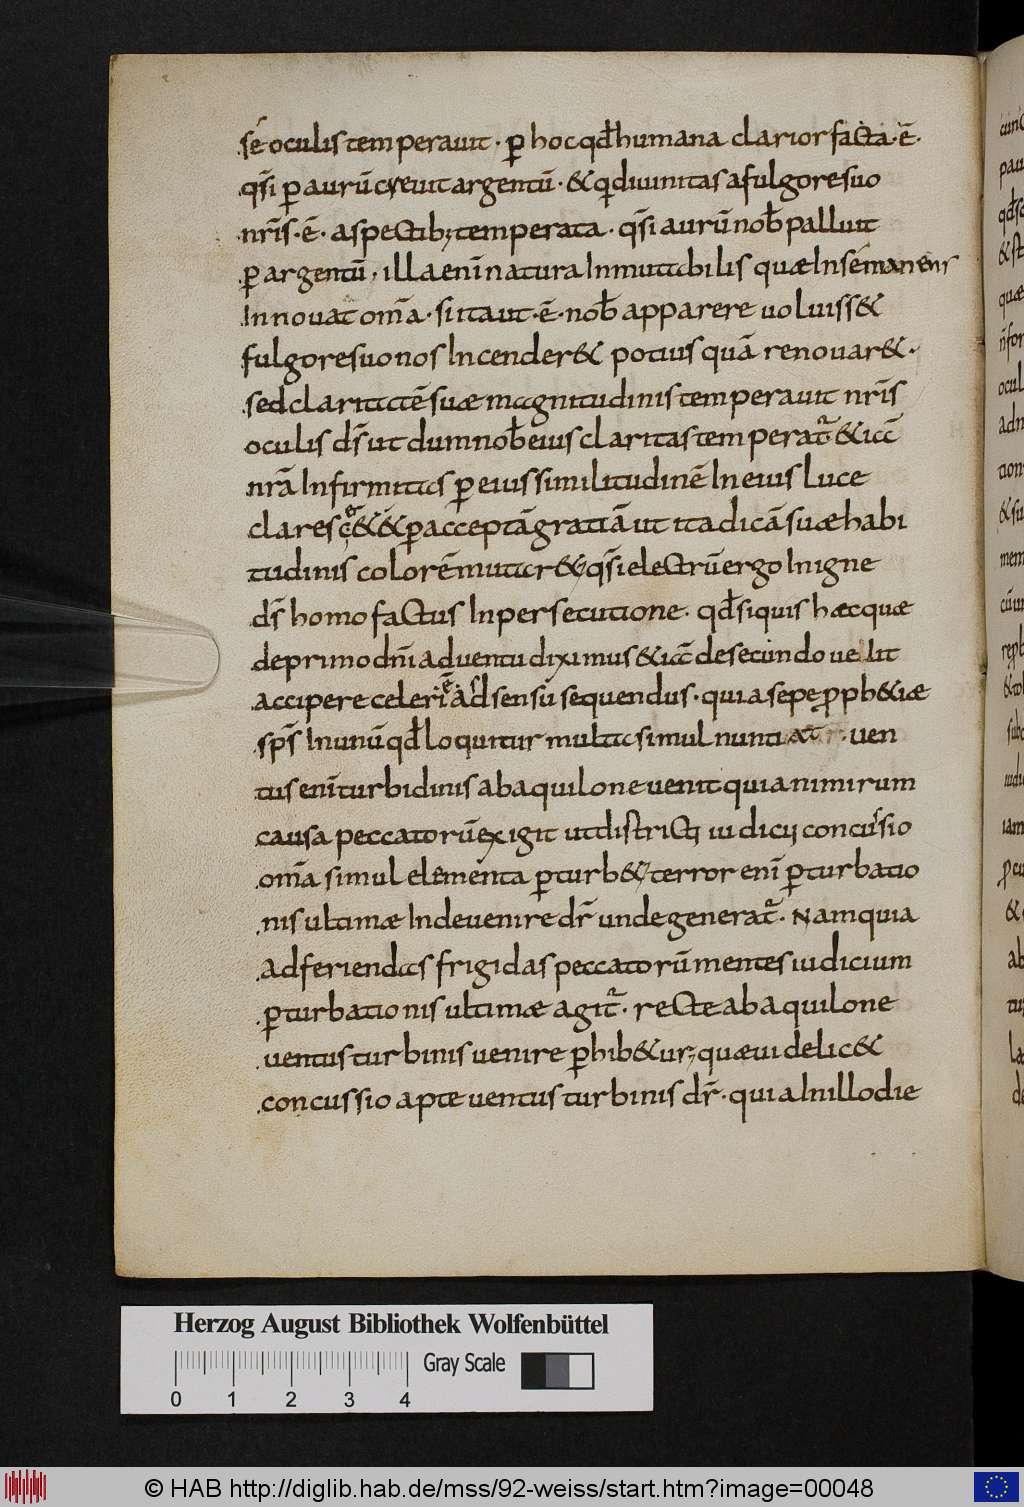 sē oculis temperauit · ꝑ hoc qđ humana clarior facta · ē ·
qs̄i ꝑ aurū creuit argentū · & qđ diuinitas a fulgore suo
nr̄is · ē · aspectibꝫ temperata · qs̄i aurū nob̄ palluit
ꝑ argentū · illa enī natura Inmutabilis quæ In sē manens
Innouat om̄a · si ita ut · ē · nob̄ apparere uoluiss&
fulgore suo nos Incender& potius quā renouar& ·
sed claritatē suæ magnitudinis temperauit nr̄is
oculis d̄s ut dum nob̄ eius claritas temperat̃ & iā
nr̄a Infirmitas ꝑ eius similitudinē In eius luce
claresc& & ꝑ acceptā gratiā ut ita dicā suæ habi
tudinis colorē mutar& qs̄i electrū ergo In igne
d̄s homo factus In persecutione · qđ siquis hæc quæ
de primo dn̄i aduentu diximus & iā de secundo uelit
accipere celeri ē ad sensū sequendus · quia sepe ꝓph&iæ
sp̄s In unū qđ loquitur multa simul nuntiat · uen
tus enī turbidinis ab aquilone uenit quia nimirum
causa peccatorū exigit ut districti iudicij concussio
om̄a simul elementa ꝑturb& terror enī ꝑturbatio
nis ultimæ Inde uenire dr̄ unde generat̃ · Nam quia
ad feriendas frigidas peccatorū mentes iudicium
ꝑturbationis ultimæ agit̃ · recte ab aquilone
uentus turbinis uenire ꝑhib&ur quæ uidelic&
concussio apte uentus turbinis dr̄ · quia In illo die
Herzog August Bibliothek Wolfenbüttel
0 1 2 3 4 Gray Scale
© HAB http://diglib.hab.de/mss/92-weiss/start.htm?image=00048